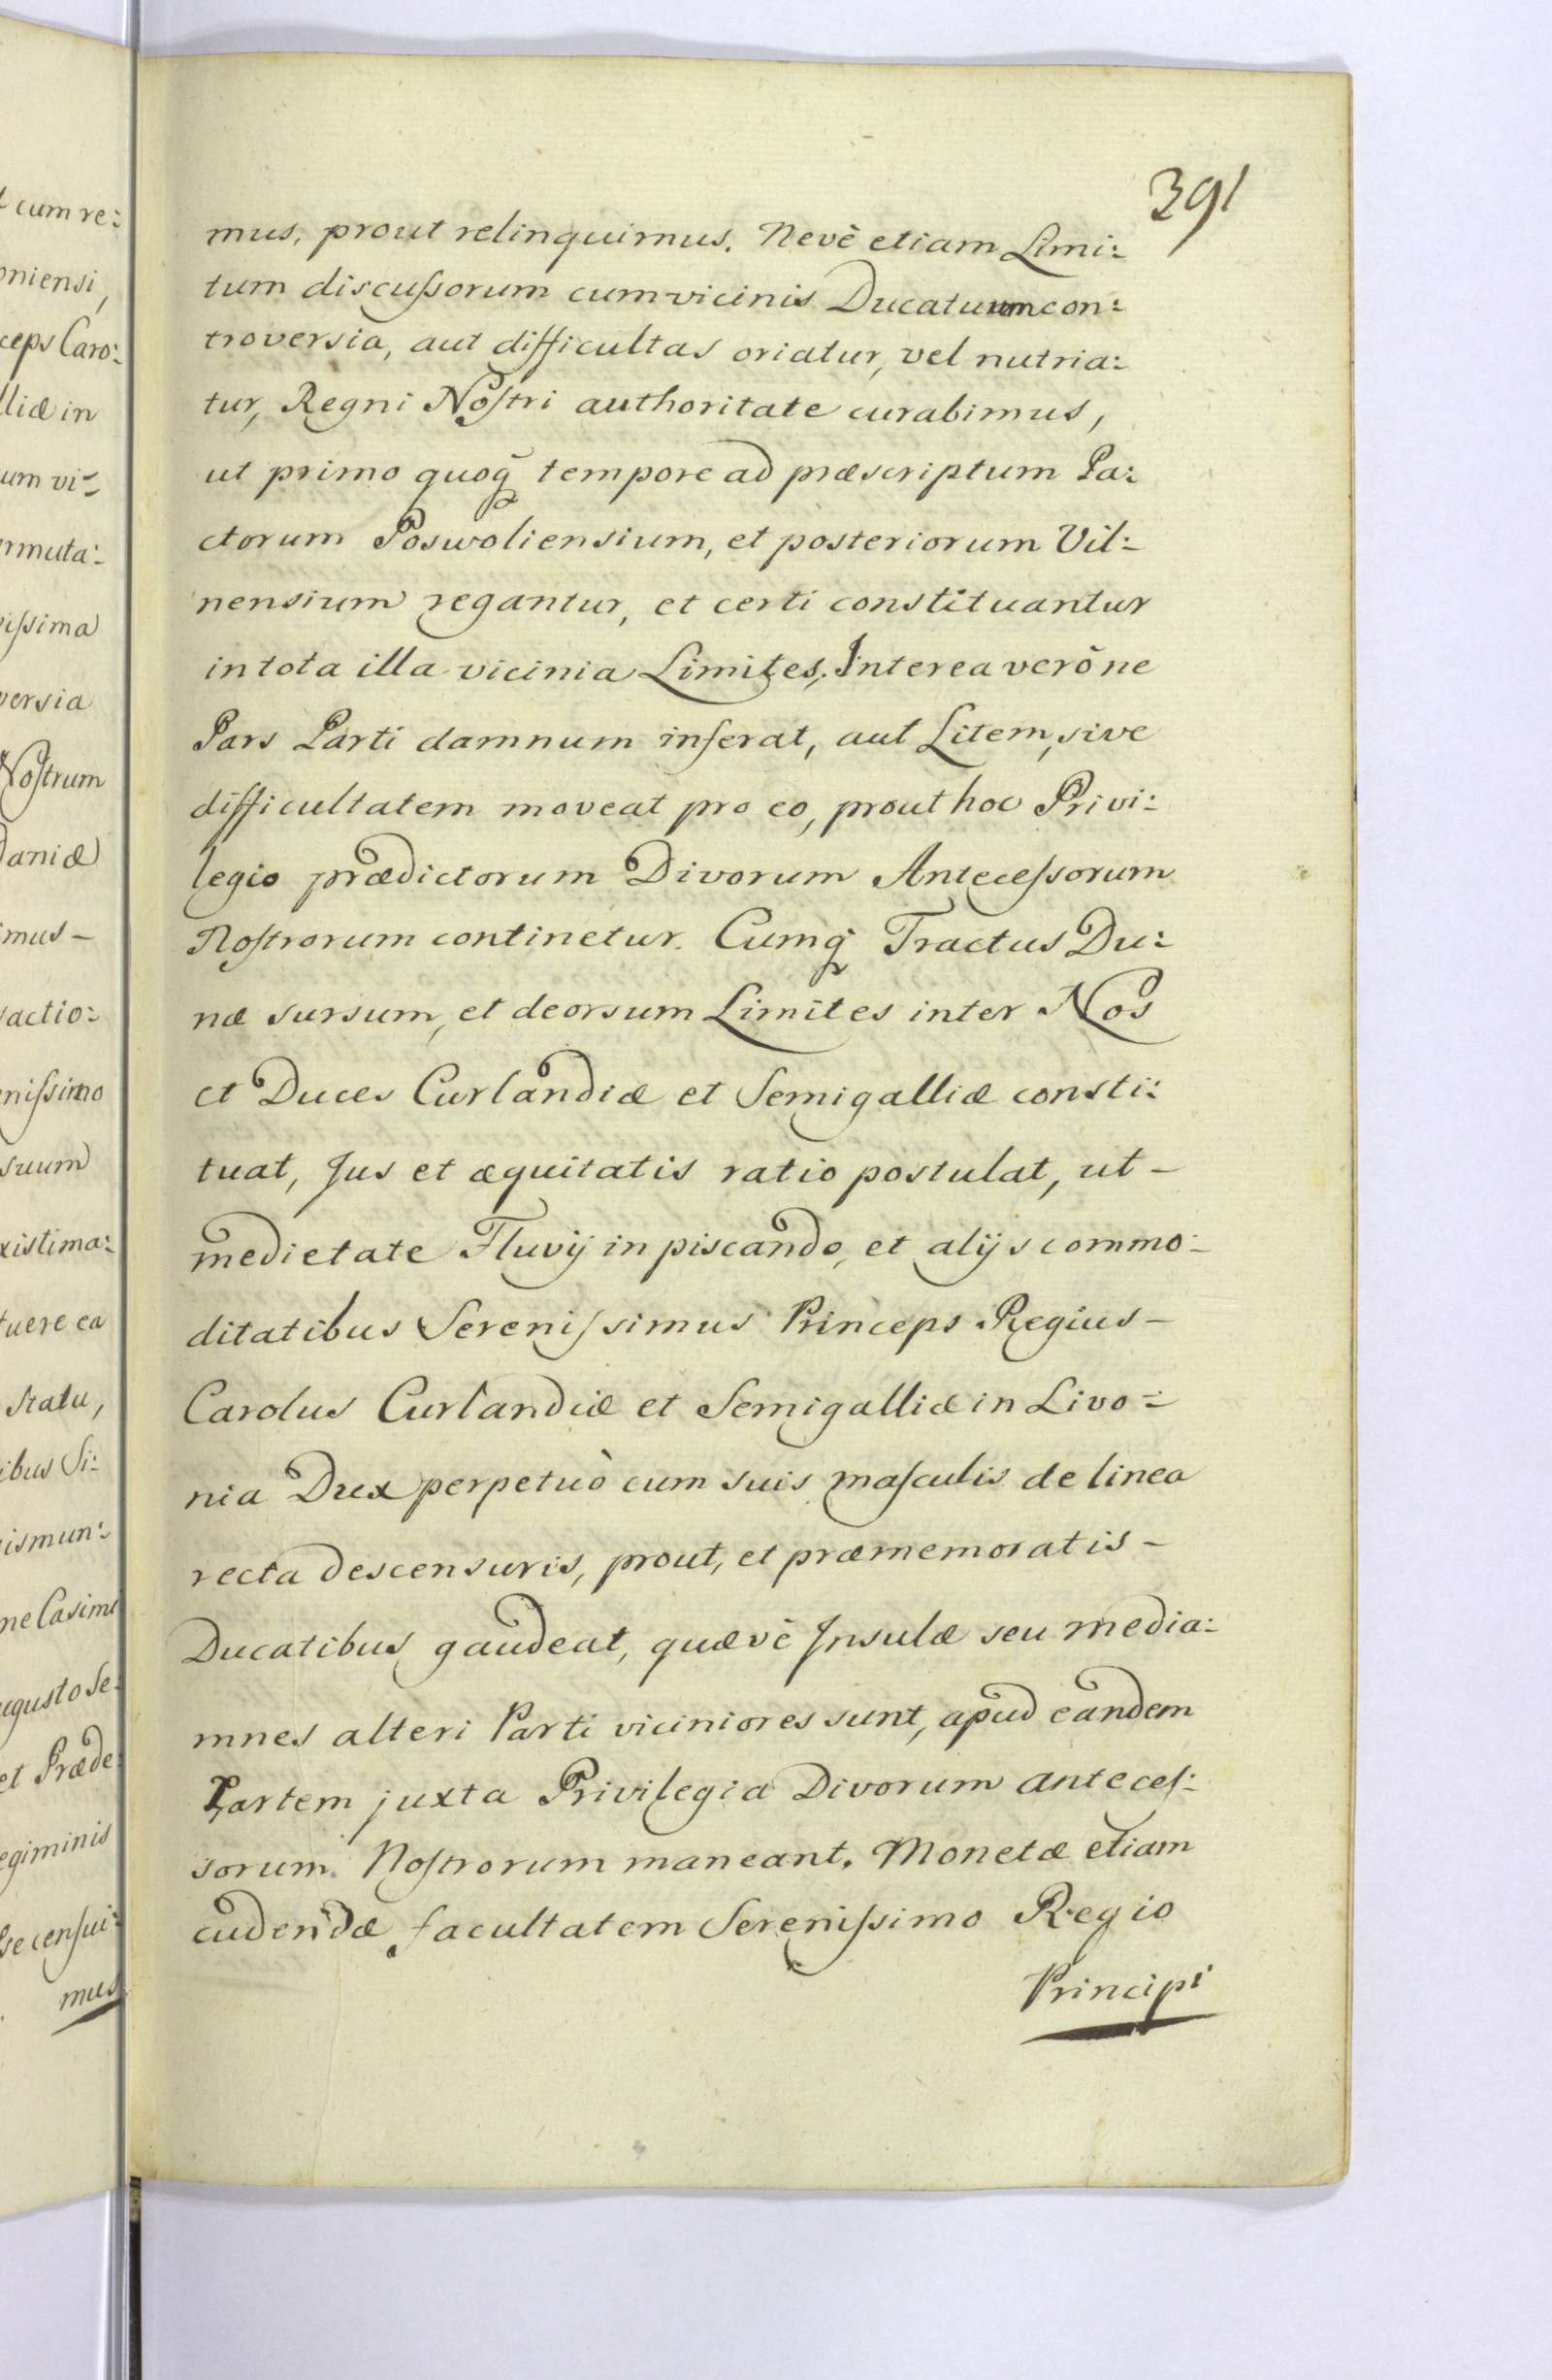 391
mus, prout relinquimus. Nevè etiam Limi:
tum discussorum cum vicinis Ducatuum con:
troversia, aut difficultas oriatur, vel nutria:
tur, Regni Nostri authoritate curabimus,
ut primo quoq̃ tempore ad præscriptum Pa:
ctorum Poswoliensium, et posteriorum Vil:
nensium regantur, et certi constituantur
in tota illa vicinia Limites; Interea verò ne
Pars Parti damnum inferat, aut Litem, sive
difficultatem moveat pro eo, prout hoc Privi:
legio prædictorum Divorum Antecessorum
Nostrorum continetur. Cumq̃ Tractus Du:
næ sursum, et deorsum Limites inter Nos
et Duces Curlandiæ et Semigalliæ consti:
tuat, Jus et æquitatis ratio postulat, ut –
medietate Fluvij in piscando, et alijs commo:
ditatibus Serenissimus Princeps Regius –
Carolus Curlandiæ et Semigalliæ in Livo:
nia Dux perpetuò cum suis masculis de linea
recta descensuris, prout, et præmemoratis –
Ducatibus gaudeat, quævè Insulæ seu media:
mnes alteri Parti viciniores sunt, apud eandem
Partem juxta Privilegia Divorum anteces:
sorum Nostrorum maneant. Monetæ etiam
cudendæ facultatem Serenissimo Regio
Principi
t cum re:
oniensi,
ceps Caro:
lliæ in
um vi:
rmuta:
issima
versia
Nostrum
daniæ
imus –
actio:
nissimo
suum
xistima:
tuere ea
statu,
ibus Si:
ismun:
ne Casimi
ugusto Se:
et Præde:
egiminis
se censui:
mus